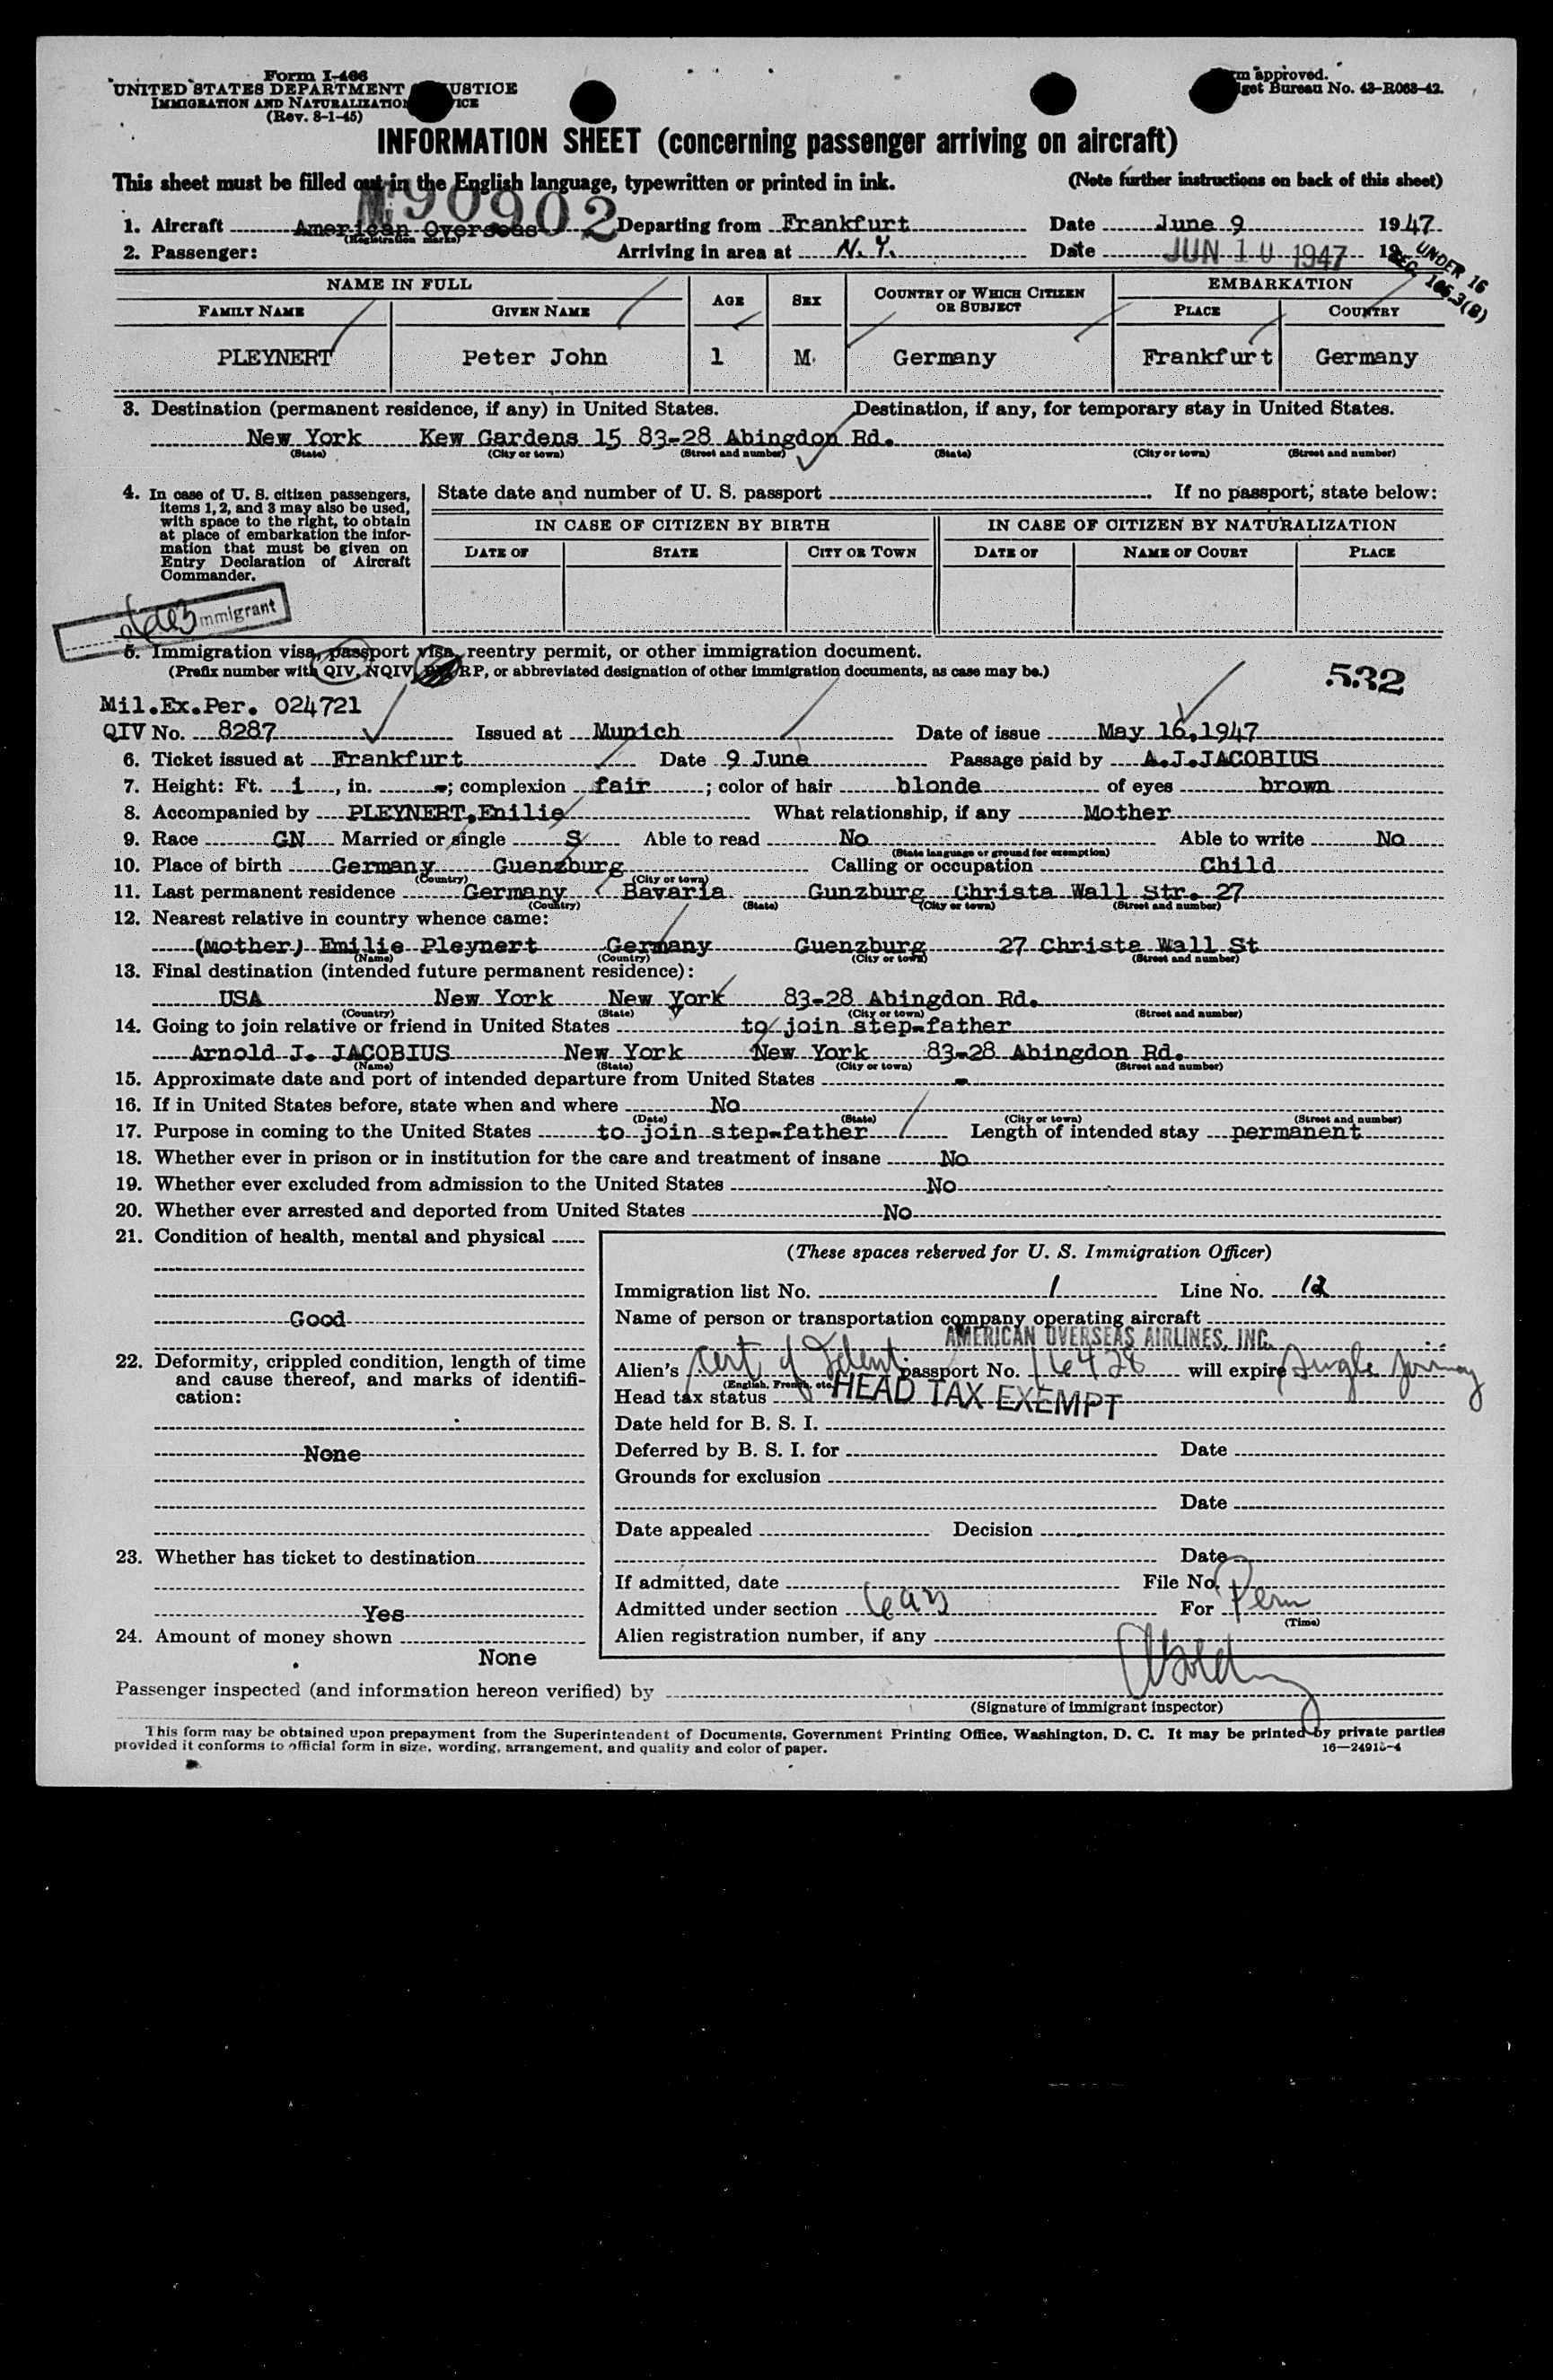 Form I-466
UNITED STATES DEPARTMENT USTICE
IMMIGRATION AND NATURALIZATION ICE
(Rev. 8-1-45)
m approved.
get Bureau No. 43-R063-42.
INFORMATION SHEET (concerning passenger arriving on aircraft)
This sheet must be filled out in the English language, typewritten or printed in ink. (Note further instructions on back of this sheet)
90902
1. Aircraft American Overseas Departing from Frankfurt Date June 9 1947
(Registration marks)
2. Passenger: Arriving in area at N.Y. Date JUN 10 1947 19
UNDER 16
SEC. 106.3(B)
NAME IN FULL AGE SEX COUNTRY OF WHICH CITIZEN OR SUBJECT EMBARKATION
FAMILY NAME GIVEN NAME PLACE COUNTRY
PLEYNERT Peter John 1 M. Germany Frankfurt Germany
3. Destination (permanent residence, if any) in United States. Destination, if any, for temporary stay in United States.
New York Kew Gardens 15 83-28 Abingdon Rd.
(State) (City or town) (Street and number) (State) (City or town) (Street and number)
4. In case of U. S. citizen passengers, items 1, 2, and 3 may also be used, with space to the right, to obtain at place of embarkation the information that must be given on Entry Declaration of Aircraft Commander.
State date and number of U. S. passport If no passport, state below:
IN CASE OF CITIZEN BY BIRTH IN CASE OF CITIZEN BY NATURALIZATION
DATE OF STATE CITY OR TOWN DATE OF NAME OF COURT PLACE
mmigrant
5. Immigration visa, passport visa, reentry permit, or other immigration document.
(Prefix number with QIV, NQIV, RP, or abbreviated designation of other immigration documents, as case may be.)
532
Mil.Ex.Per. 024721
QIV No. 8287 Issued at Munich Date of issue May 16,1947
6. Ticket issued at Frankfurt Date 9 June Passage paid by A.J.JACOBIUS
7. Height: Ft. 1, in. -; complexion fair; color of hair blonde of eyes brown
8. Accompanied by PLEYNERT,Enilie What relationship, if any Mother
9. Race GN Married or single S Able to read No Able to write No
(State language or ground for exemption)
10. Place of birth Germany Guenzburg Calling or occupation Child
(Country) (City or town)
11. Last permanent residence Germany Bavaria Gunzburg Christa Wall Str. 27
(Country) (State) (City or town) (Street and number)
12. Nearest relative in country whence came:
(Mother) Emilie Pleynert Germany Guenzburg 27 Christa Wall St
(Name) (Country) (City or town) (Street and number)
13. Final destination (intended future permanent residence):
USA New York New York 83-28 Abingdon Rd.
(Country) (State) (City or town) (Street and number)
14. Going to join relative or friend in United States to join step-father
Arnold J. JACOBIUS New York New York 83-28 Abingdon Rd.
(Name) (State) (City or town) (Street and number)
15. Approximate date and port of intended departure from United States -
16. If in United States before, state when and where No
(Date) (State) (City or town) (Street and number)
17. Purpose in coming to the United States to join step-father Length of intended stay permanent
18. Whether ever in prison or in institution for the care and treatment of insane No
19. Whether ever excluded from admission to the United States No
20. Whether ever arrested and deported from United States No
21. Condition of health, mental and physical
Good
22. Deformity, crippled condition, length of time and cause thereof, and marks of identification:
None
23. Whether has ticket to destination
Yes
24. Amount of money shown
None
(These spaces reserved for U. S. Immigration Officer)
Immigration list No. 1 Line No. 12
Name of person or transportation company operating aircraft
AMERICAN OVERSEAS AIRLINES, INC.
Alien's Cert of Ident. passport No. 16428 will expire Single Journey
(English, French, etc.)
Head tax status HEAD TAX EXEMPT
Date held for B. S. I.
Deferred by B. S. I. for Date
Grounds for exclusion
Date
Date appealed Decision
Date
If admitted, date File No.
Admitted under section 6a3 For Perm
(Time)
Alien registration number, if any
Passenger inspected (and information hereon verified) by
(Signature of immigrant inspector)
This form may be obtained upon prepayment from the Superintendent of Documents, Government Printing Office, Washington, D. C. It may be printed by private parties
provided it conforms to official form in size, wording, arrangement, and quality and color of paper. 16—24915-4